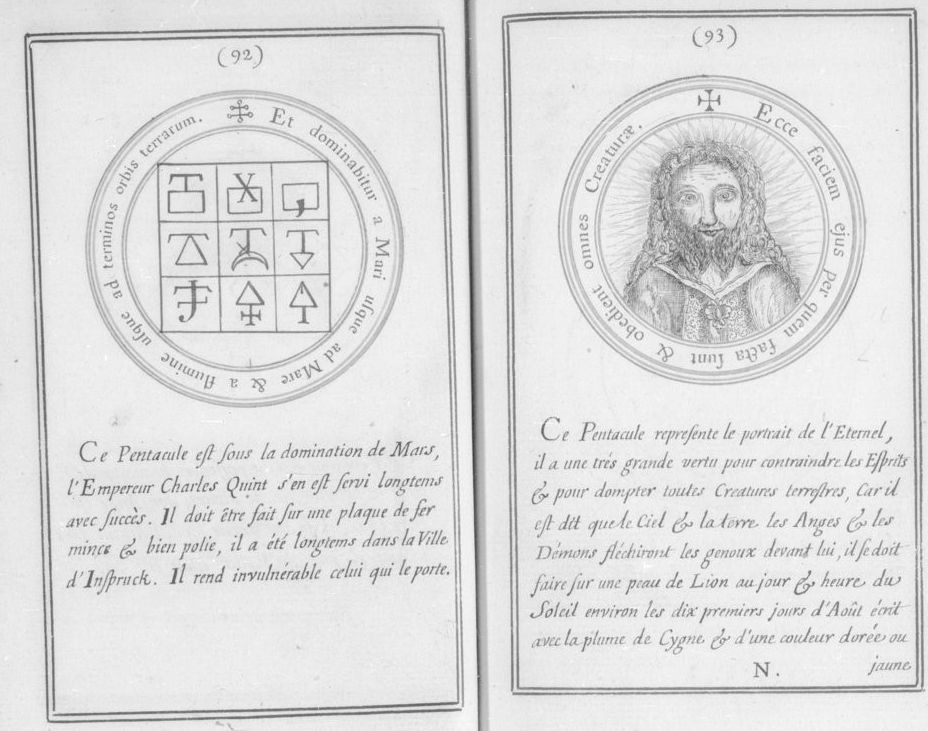 (92)
Et dominabitur a Mari uſque ad Mare & a flumine uſque ad terminos orbis terrarum.
X
Ce Pentacule eſt ſous la domination de Mars,
l'Empereur Charles Quint s'en eſt ſervi longtems
avec ſuccès. Il doit être fait ſur une plaque de fer
mince & bien polie, il a été longtems dans la Ville
d'Inſpruck. Il rend invulnérable celui qui le porte.
(93)
Ecce faciem ejus per quem facta ſunt & obedient omnes Creaturæ.
Ce Pentacule repreſente le portrait de l'Eternel,
il a une trés grande vertu pour contraindre les Eſprits
& pour dompter toutes Creatures terreſtres, Car il
eſt dit que le Ciel & la terre les Anges & les
Démons fléchiront les genoux devant lui, il ſe doit
faire ſur une peau de Lion au jour & heure du
Soleil environ les dix premiers jours d'Août écrit
avec la plume de Cygne & d'une couleur dorée ou
N.
jaune